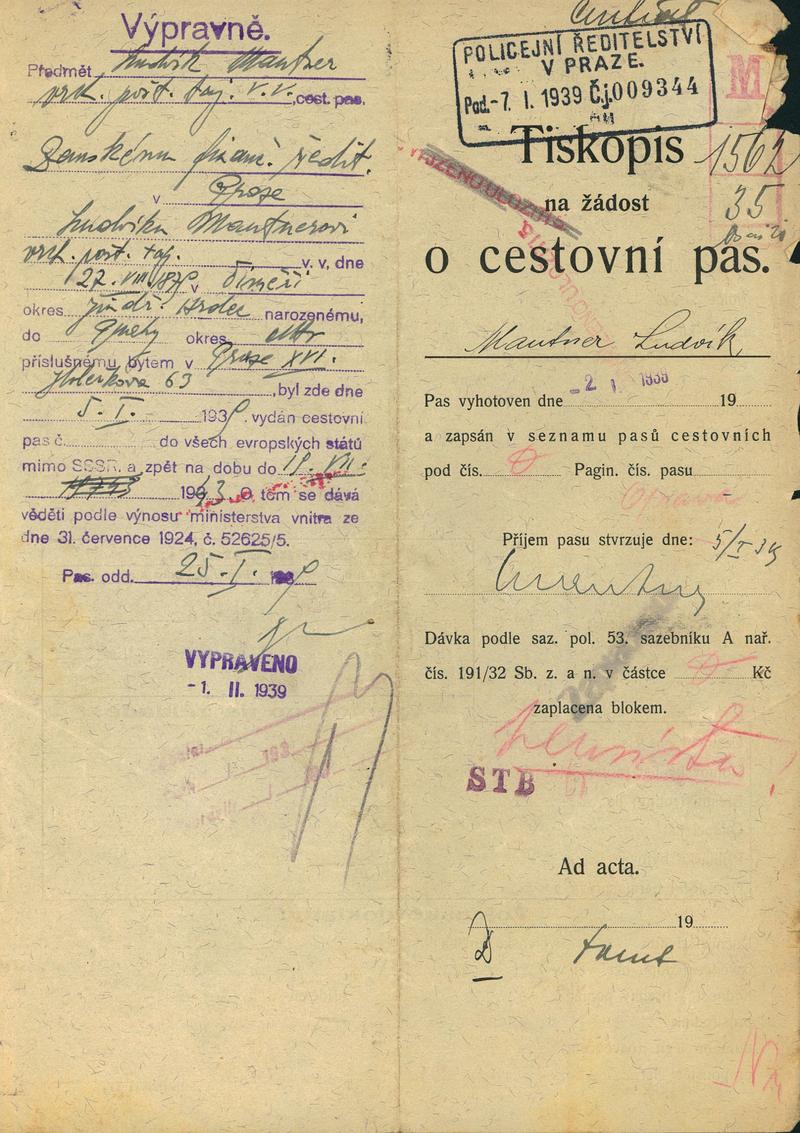 Výpravně.
Předmět Ludvík Mautner
vrch. pošt. taj. v. v., cest. pas.
Zemskému finanč. ředit.
v Praze
Ludvíku Mautnerovi
vrch. pošt. taj. v. v., dne
27. VIII 187 v
okres Jindř. Hradec narozenému,
do okres
příslušnému, bytem v Praze XVI.
Holečkova 63, byl zde dne
5. I. 1939. vydán cestovní
pas č. do všech evropských států
mimo SSSR. a zpět na dobu do
1943. O tom se dává
věděti podle výnosu ministerstva vnitra ze
dne 31. července 1924, č. 52625/5.
Pas. odd. 25. I. 9
VYPRAVENO
-1. II. 1939
POLICEJNÍ ŘEDITELSTVÍ
V PRAZE.
Pod. -7. I. 1939 Č.j. 009344
M
Tiskopis
1562
na žádost
35
o cestovní pas.
Mautner Ludvík
Pas vyhotoven dne -2 I 1939 19
a zapsán v seznamu pasů cestovních
pod čís. Pagin. čís. pasu
Oprava
Příjem pasu stvrzuje dne: 5/I 39
Dávka podle saz. pol. 53. sazebníku A nař.
čís. 191/32 Sb. z. a n. v částce Kč
zaplacena blokem.
STB
Ad acta.
19